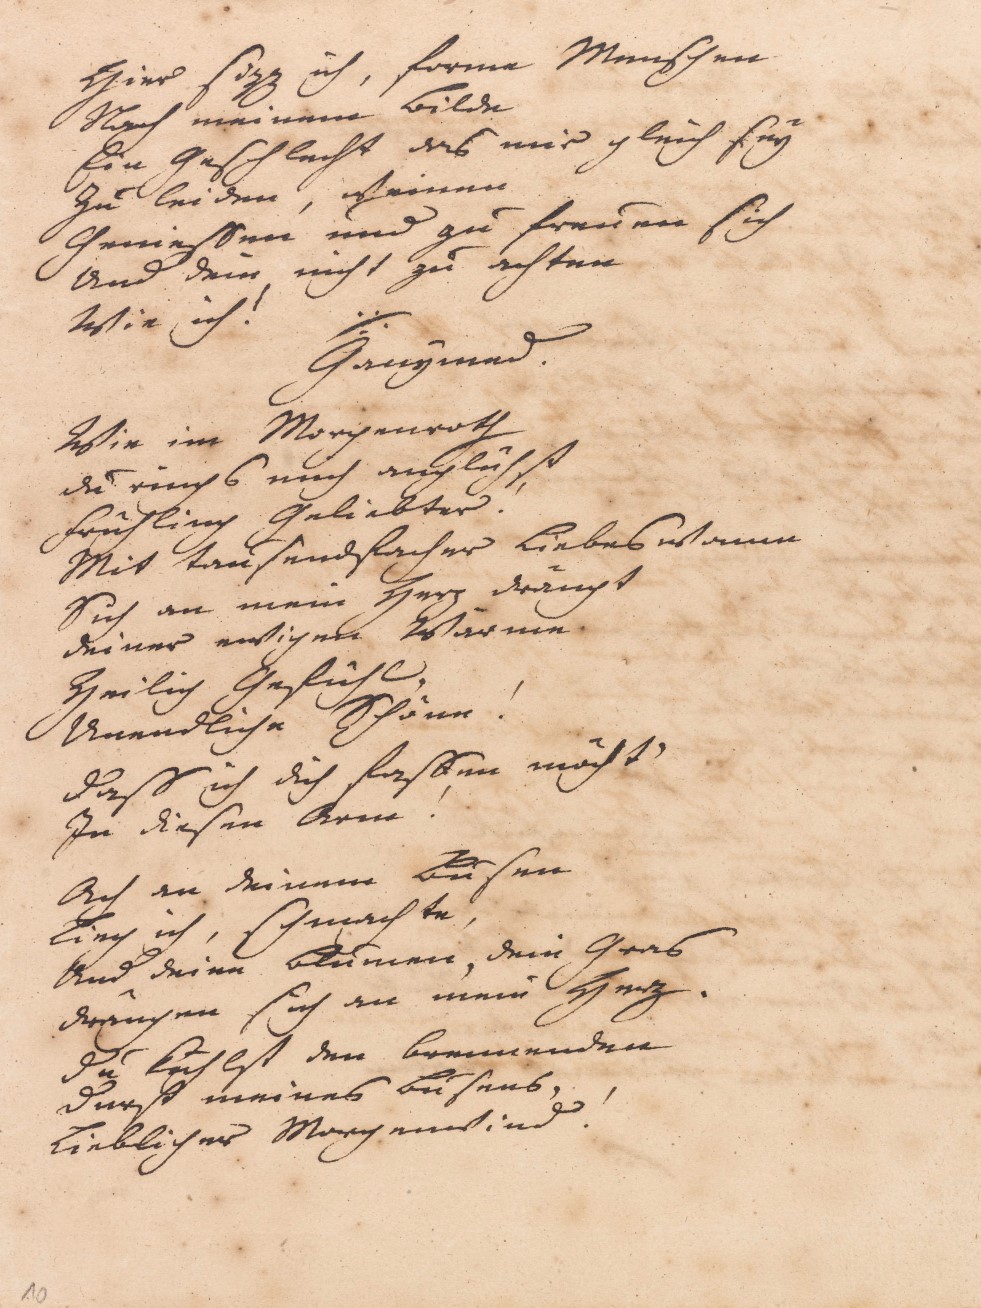 Hier sizz ich, forme Menschen
Nach meinem Bilde
Ein Geschlecht das mir gleich sey
Zu leiden, weinen
Geniessen und zu freuen sich
Und dein nicht zu achten
Wie ich!
Ganymed.
Wie im Morgenroth
du rings mich anglühst,
Frühling Geliebter!
Mit tausendfacher Liebeswonne
Sich an mein Herz drängt
deiner ewigen Wärme
Heilig Gefühl,
Unendliche Schöne!
Dass ich dich fassen möcht'
In diesen Arm!
Ach an deinem Busen
Lieg ich, schmachte,
Und deine Blumen, dein Gras
drängen sich an mein Herz.
du kühlst den brennenden
Durst meines Busens,
Lieblicher Morgenwind!
10